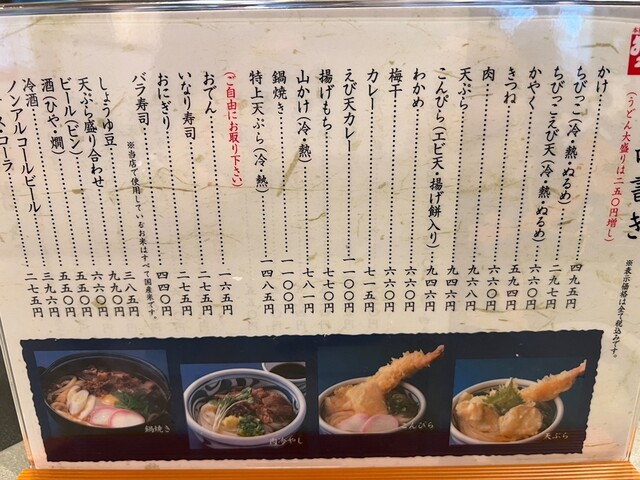 品書き
(うどん大盛りは二五〇円増し)
※表示価格は全て税込みです。
かけ 四九五円
ちびっこ(冷・熱・ぬるめ) 二九七円
ちびっこえび天(冷・熱・ぬるめ) 六六〇円
かやく 五九四円
きつね 六六〇円
肉 九六八円
天ぷら 九四六円
こんぴら(エビ天・揚げ餅入り) 九四六円
わかめ 六六〇円
梅干 六六〇円
カレー 七一五円
えび天カレー 一一〇〇円
揚げもち 七七〇円
山かけ(冷・熱) 七八一円
鍋焼き 一一〇〇円
特上天ぷら(冷・熱) 一四八五円
(ご自由にお取り下さい)
おでん 一六五円
いなり寿司 二七五円
おにぎり 二七五円
バラ寿司 四四〇円
※当店で使用しているお米はすべて国産米です。
しょうゆ豆 三八五円
天ぷら盛り合わせ 九九〇円
ビール(ビン) 六六〇円
酒(ひや・燗) 五五〇円
冷酒 五五〇円
ノンアルコールビール 三九六円
ース・コーラ 二七五円
鍋焼き
肉ひやし
こんぴら
天ぷら